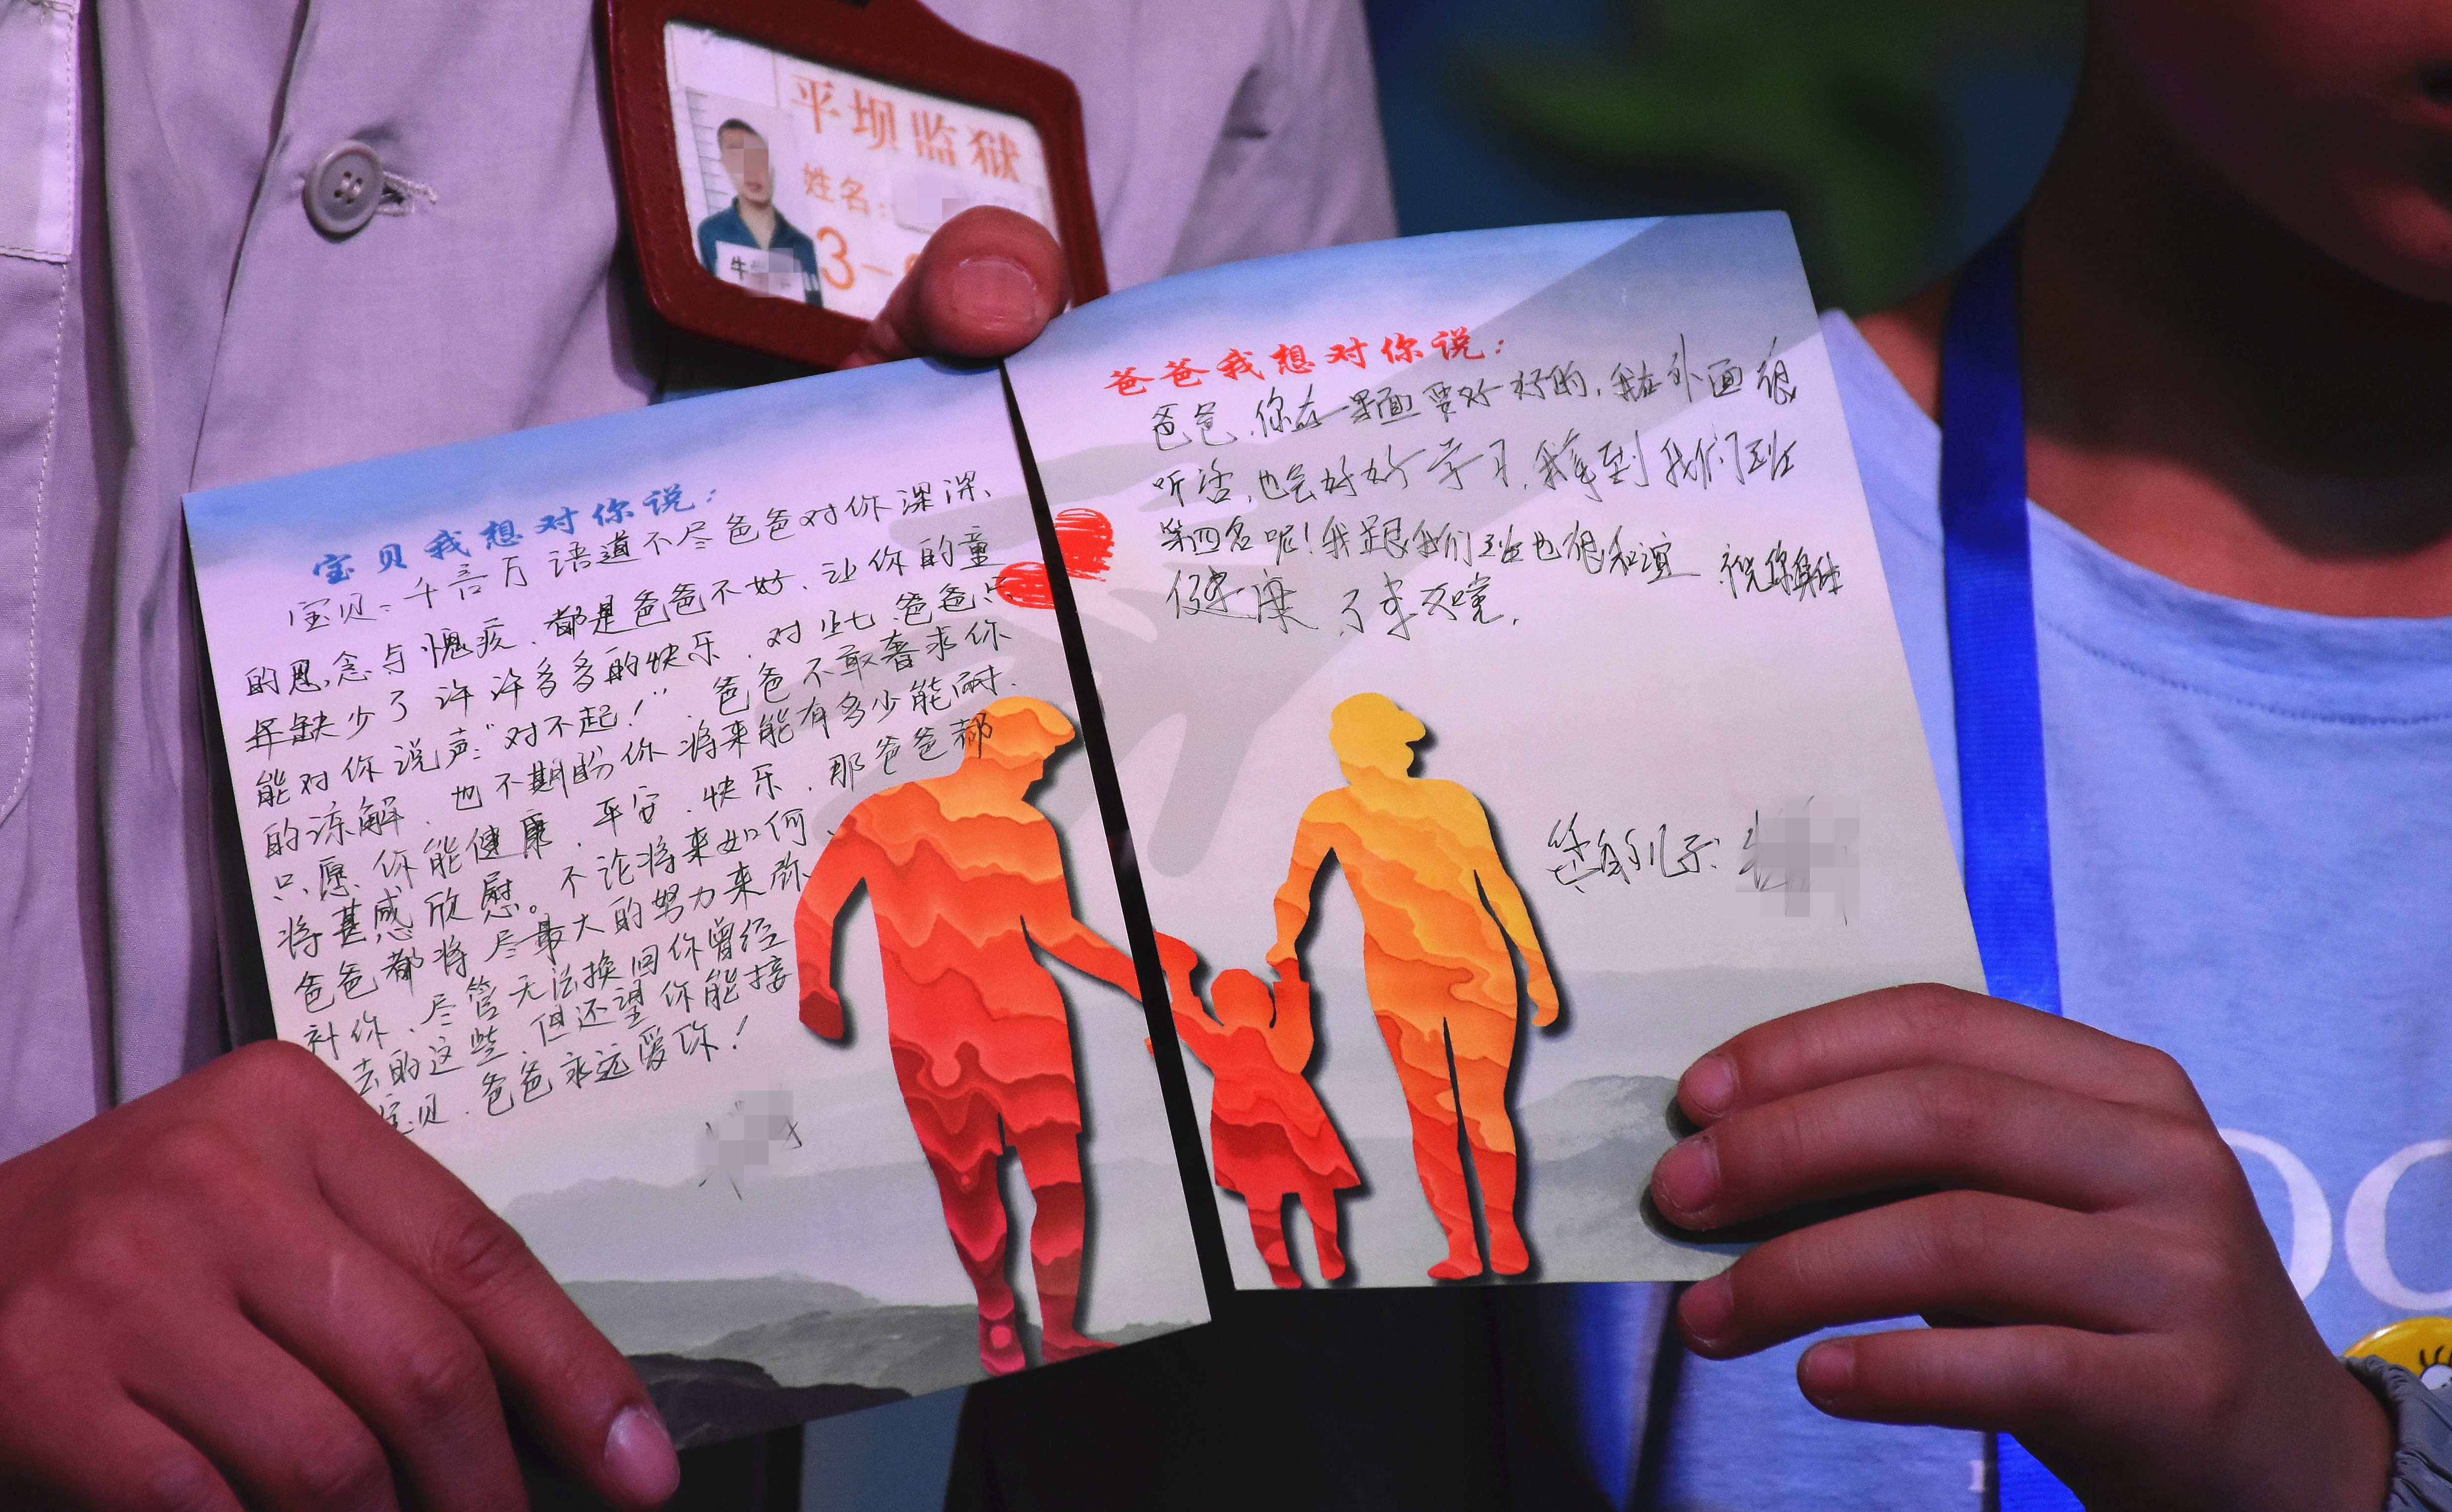 平坝监狱
姓名：
3-
牛
宝贝我想对你说：
宝贝：千言万语道不尽爸爸对你深深
的思念与愧疚，都是爸爸不好，让你的童
年缺少了许许多多的快乐，对此爸爸只
能对你说声：“对不起！”，爸爸不敢奢求你
的谅解，也不期盼你将来能有多少能耐，
只愿你能健康，平安，快乐，那爸爸都
将甚感欣慰。不论将来如何，
爸爸都将尽最大的努力来弥
补你，尽管无法换回你曾经
去的这些，但还望你能接
宝贝，爸爸永远爱你！
爸爸我想对你说：
爸爸，你在里面要好好的，我在外面很
听话，也会好好学习，我拿到我们班
第四名呢！我跟我们班也很和谐 祝你身体
健康
的儿子：